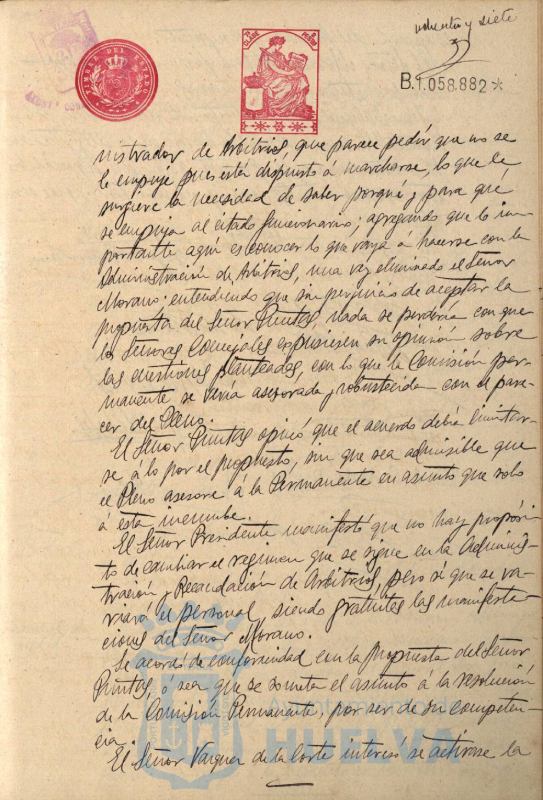 noventa y siete
TIMBRE DEL ESTADO
B.1.058.882*
nistrador de Arbitrios, que parece pedir que no se
le empuje pues está dispuesto á marcharse, lo que le
sugiere la necesidad de saber porqué y para qué
se empuja al citado funcionario; agregando que lo im-
portante aquí es conocer lo que vaya a hacerse con la
Administración de Arbitrios, una vez eliminado el Señor
Morano; entendiendo que sin perjuicio de aceptar la
propuesta del Señor Puntas, nada se perdería con que
los Señores Concejales expusiesen su opinión sobre
las cuestiones planteadas, con lo que la Comisión per-
manente se vería asesorada y robustecida con el pare-
cer del Pleno.
El Señor Puntas opinó que el acuerdo debía limitar-
se á lo por el propuesto, sin que sea admisible que
el Pleno asesore á la Permanente en asunto que solo
á esta incumbe.
El Señor Presidente manifestó que no hay propósi-
to de cambiar el regimen que se sigue en la Adminis-
tración y Recaudación de Arbitrios, pero sí que se va-
riará el personal, siendo gratuitas las manifesta-
ciones del Señor Morano.
Se acordó de conformidad con la propuesta del Señor
Puntas, ó sea que se someta el asunto á la resolución
de la Comisión Permanente, por ser de su competen-
cia.
El Señor Vazquez de la Corte interesó se activase la
HUELVA